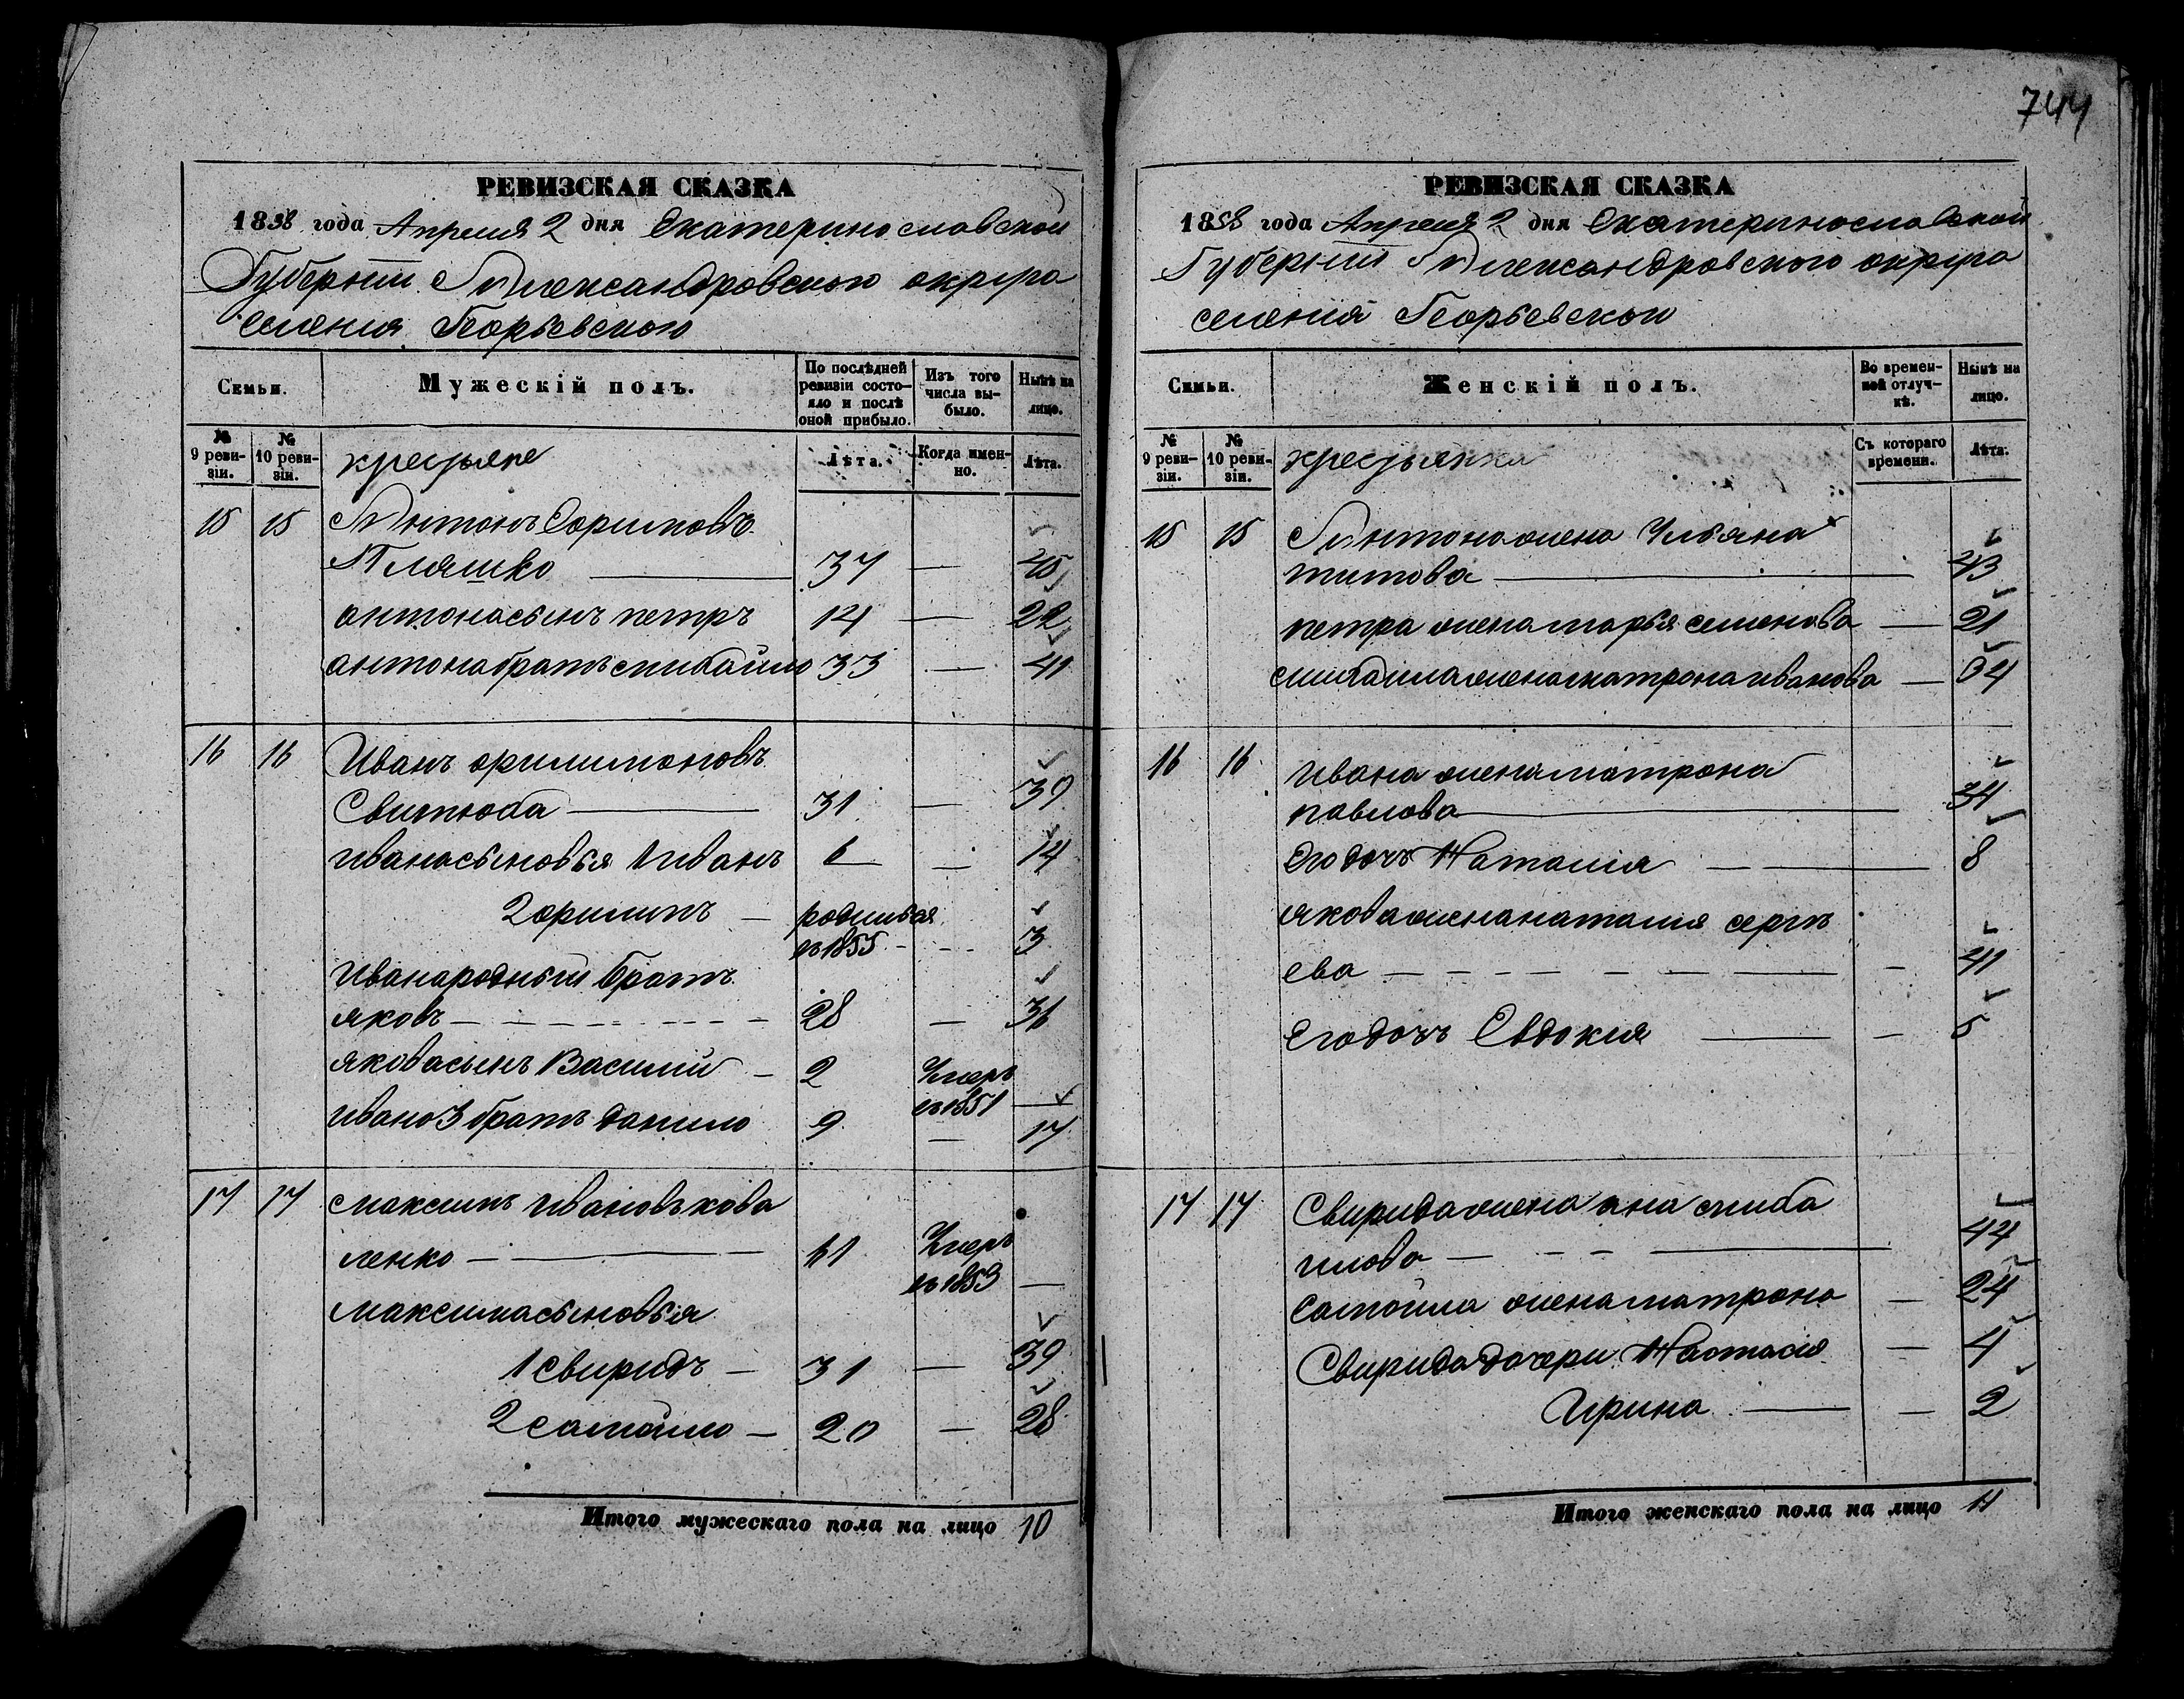 744
РЕВИЗСКАЯ СКАЗКА
1858 года Апреля 2 дня Екатеринославской
Губернии Александровского округа
селения Георгевского
Семьи.
Мужескій полъ.
По послѣдней ревизіи состояло и послѣ оной прибыло.
Изъ того числа выбыло.
Нынѣ на лицо.
№ 9 ревизіи.
№ 10 ревизіи.
крестьяне
Лѣта.
Когда именно.
Лѣта.
15 15 Антонъ
Пляшко 37 — 45
антона сынъ петръ 14 — 22
антона братъ михайло 33 — 41
16 16 Иванъ филимоновъ
31 — 39
ивана сыновья 1 иванъ 6 — 14
2 филипъ — родился
въ 1855 - - - 3
Ивана родный братъ
яковъ 28 — 36
якова сынъ Василий — 2 Умеръ
въ 1851 —
ивана 3 братъ данило 9 — 17
17 17 максимъ ивановъ кова
ленко — 61 Умеръ
въ 1853 —
максима сыновья
1 свиридъ — 31 — 39
2 самойло — 20 — 28
Итого мужескаго пола на лицо 10
РЕВИЗСКАЯ СКАЗКА
1858 года Апреля 2 дня Екатеринославской
Губернии Александровского округа
селения Георгевского
Семьи.
Женскій полъ.
Во временной отлучкѣ.
Нынѣ на лицо.
№ 9 ревизіи.
№ 10 ревизіи.
крестьянка
Съ котораго времени.
Лѣта.
15 15 Антона жена Ульяна
титова — 43
петра жена марья семенова — 21
михайла жена матрона иванова — 34
16 16 ивана жена матрона
павлова — 34
Его дочь Наталия — 8
якова жена наталия серге
ева — 41
его дочь Евдокия — 5
17 17 Свирида жена ана миха
илова — 44
самойла жена матрона — 24
Свирида дочери Настасия — 4
Ирина — — 2
Итого женскаго пола на лицо 11